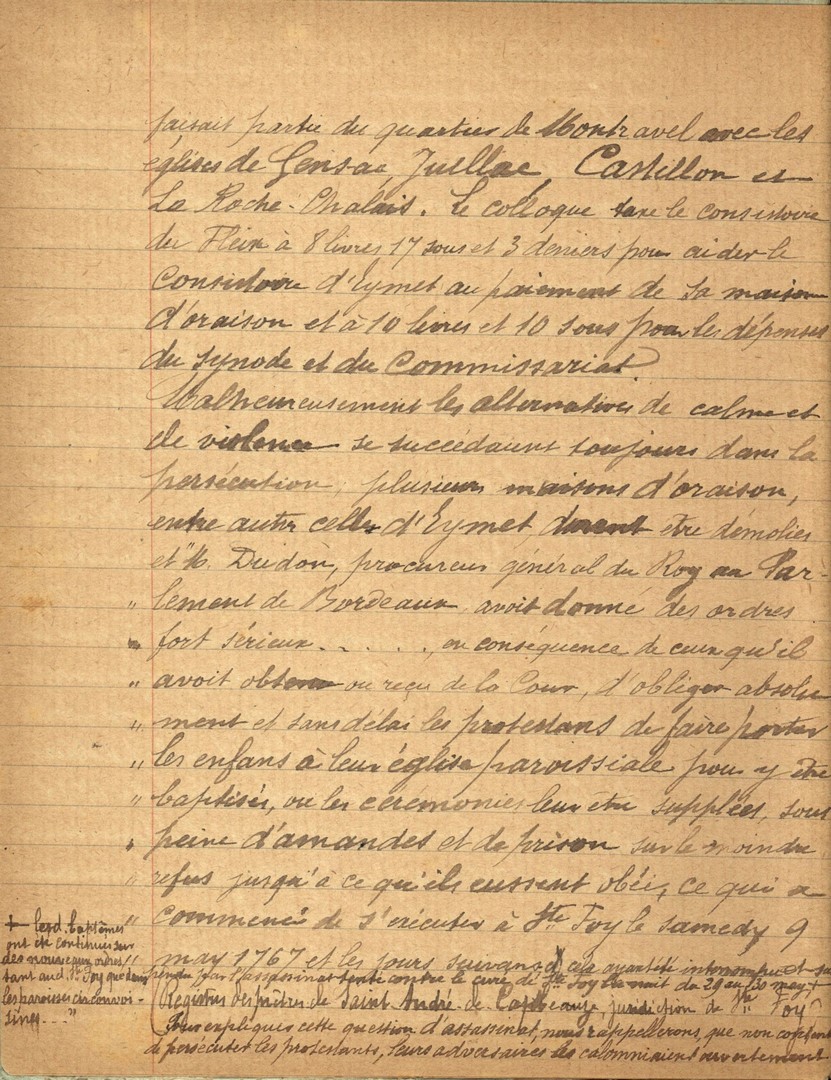 faisait partie du quartier de Montravel avec les
églises de Gensac, Juillac, Castillon et
La Roche-Chalais. Le colloque taxe le consistoire
du Fleix à 8 livres 17 sous et 3 deniers pour aider le
Consistoire d'Eymet au paiement de sa maison
d'oraison et à 10 livres et 10 sous pour les dépenses
du synode et du Commissariat
Malheureusement les alternatives de calme et
de violence se succédaient toujours dans la
persécution, plusieurs maisons d'oraison,
entre autre celle d'Eymet, durent être démolies
et "M. Dudon, procureur général du Roy au Par-
" lement de Bordeaux, avoit donné des ordres
" fort sérieux . . . . . . , en conséquence de ceux qu'il
" avoit obtenu ou reçu de la Cour, d'obliger absolu
" ment et sans délai les protestans de faire porter
" les enfans à leur église paroissiale pour y être
" baptisés, ou les cérémonies leur être supplées, sous
" peine d'amandes et de prison sur le moindre
" refus jusqu'à ce qu'ils eussent obéi, ce qui a
" commencé de s'exécuter à Ste Foy le samedy 9
" may 1767 et les jours suivans, cela a été interrompu et sus
pendu par l'assassinat tenté contre le curé de Ste Foy la nuit du 29 au 30 may +
Registres des prêtres de Saint André de Cap, juridiction de Ste Foy
Pour expliquer cette question d'assassinat, nous rappellerons, que non contens
de persécuter les protestants, leurs adversaires les calomniaient ouvertement
+ Lesd. baptêmes
ont été continués sur
des nouveaux ordres
tant aud. Ste Foy que dans
les paroisses circonvoi-
sines..."